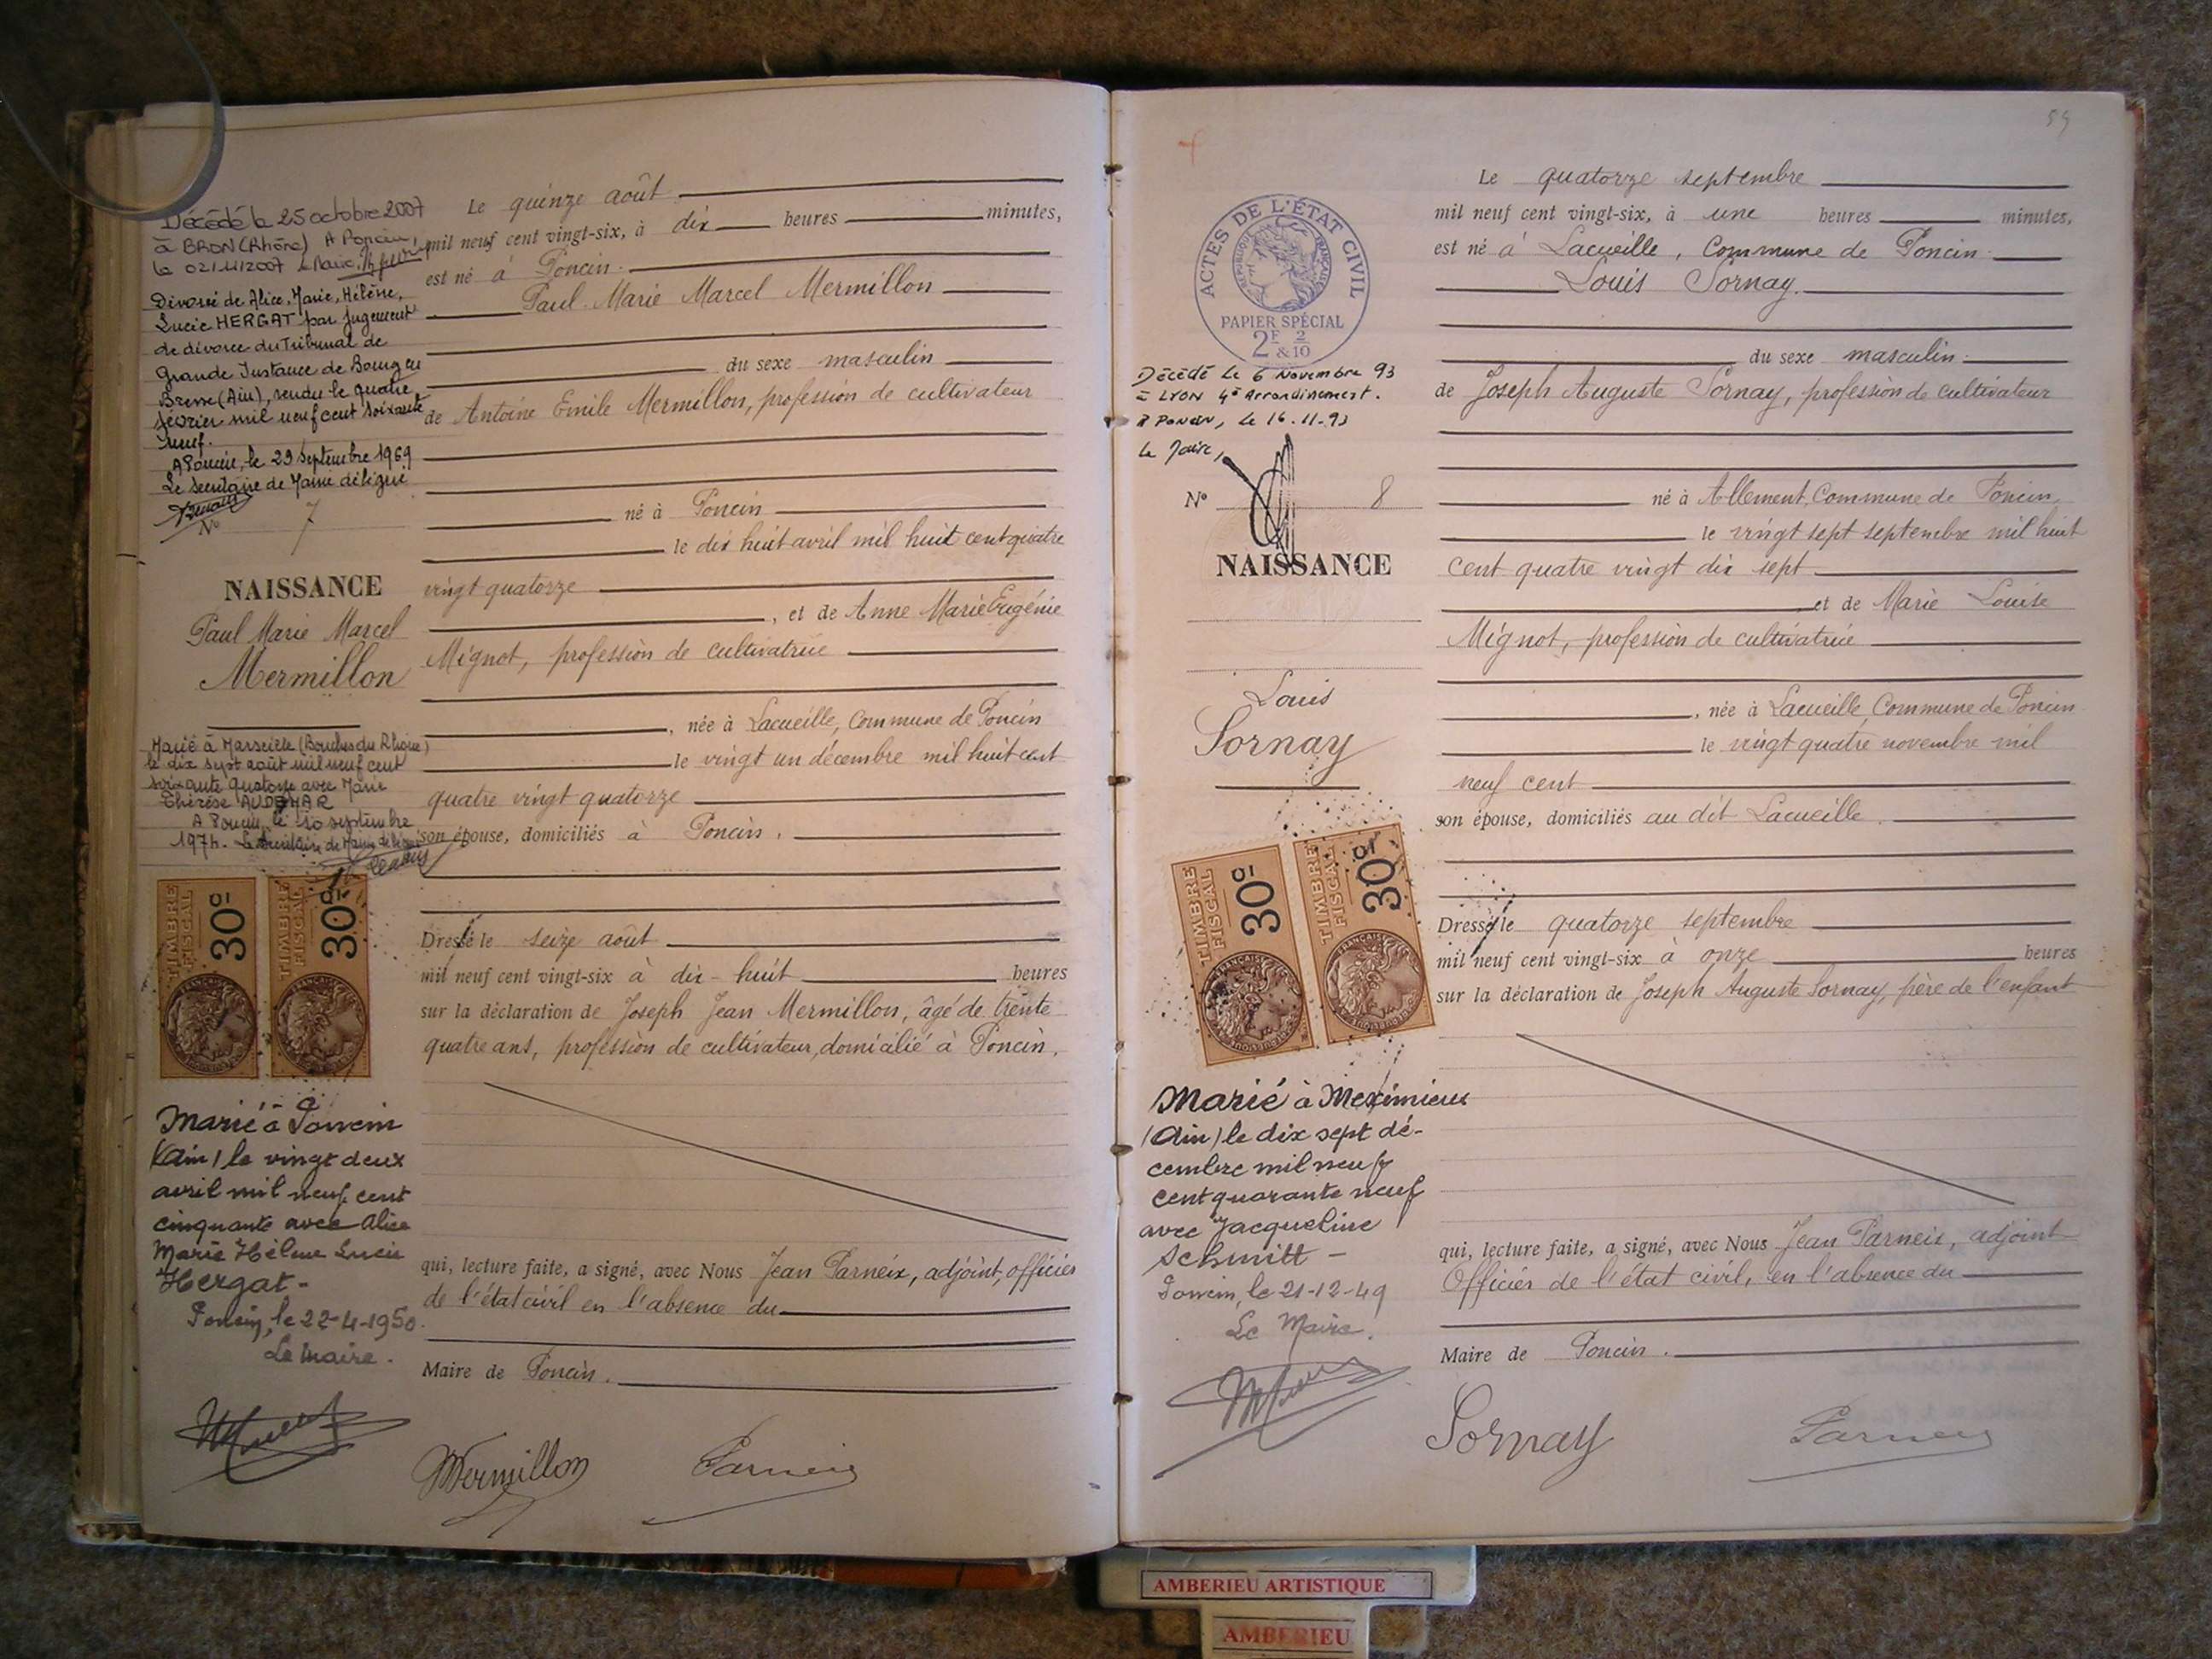 Décédé le 25 octobre 2007
à BRON (Rhône) A Poncin,
le 02/11/2007 Le Maire
Divorcé de Alice, Marie, Hélène,
Lucie HERGAT par jugement
de divorce du Tribunal de
Grande Instance de Bourg en
Bresse (Ain), rendu le quatre
février mil neuf cent soixante
neuf.
A Poncin, le 29 septembre 1969
Le Secrétaire de Mairie délégué
N° 7
NAISSANCE
Paul Marie Marcel
Mermillon
Marié à Marseille (Bouches du Rhône)
le dix sept août mil neuf cent
soixante quatorze avec Marie
Thérèse AUDEMAR
A Poncin, le 10 septembre
1974. Le Secrétaire de Mairie délégué
TIMBRE FISCAL 30c
TIMBRE FISCAL 30c
Marié à Poncin
(Ain) le vingt deux
avril mil neuf cent
cinquante avec Alice
Marie Hélène Lucie
Hergat -
Poncin, le 22-4-1950.
Le maire.
Le quinze août
mil neuf cent vingt-six, à dix heures minutes,
est né à Poncin
Paul Marie Marcel Mermillon
du sexe masculin
de Antoine Emile Mermillon, profession de cultivateur
né à Poncin
le dix huit avril mil huit cent quatre
vingt quatorze
, et de Anne Marie Eugénie
Mignot, profession de cultivatrice
, née à Lacueille, Commune de Poncin
le vingt un décembre mil huit cent
quatre vingt quatorze
son épouse, domiciliés à Poncin.
Dressé le seize août
mil neuf cent vingt-six à dix-huit heures
sur la déclaration de Joseph Jean Mermillon, âgé de trente
quatre ans, profession de cultivateur, domicilié à Poncin.
qui, lecture faite, a signé, avec Nous Jean Parneix, adjoint, officier
de l'état civil en l'absence du
Maire de Poncin.
Mermillon Parneix
59
ACTES DE L'ÉTAT CIVIL
RÉPUBLIQUE FRANÇAISE
PAPIER SPÉCIAL
2F 2
&10
Décédé le 6 Novembre 93
à LYON 4e Arrondissement.
A Poncin, le 16.11.93
Le Maire,
N° 8
NAISSANCE
Louis
Sornay
TIMBRE FISCAL 30c
TIMBRE FISCAL 30c
Marié à Meximieux
(Ain) le dix sept dé-
cembre mil neuf
cent quarante neuf
avec Jacqueline
Schmitt -
Poncin, le 21-12-49
Le Maire.
Le quatorze septembre
mil neuf cent vingt-six, à une heures minutes,
est né à Lacueille, Commune de Poncin
Louis Sornay.
du sexe masculin
de Joseph Auguste Sornay, profession de cultivateur
né à Allement, Commune de Poncin
le vingt sept septembre mil huit
cent quatre vingt dix sept
, et de Marie Louise
Mignot, profession de cultivatrice
, née à Lacueille, Commune de Poncin
le vingt quatre novembre mil
neuf cent
son épouse, domiciliés au dit Lacueille.
Dressé le quatorze septembre
mil neuf cent vingt-six à onze heures
sur la déclaration de Joseph Auguste Sornay, père de l'enfant
qui, lecture faite, a signé, avec Nous Jean Parneix, adjoint
Officier de l'état civil, en l'absence du
Maire de Poncin.
Sornay Parneix
AMBERIEU ARTISTIQUE
AMBERIEU